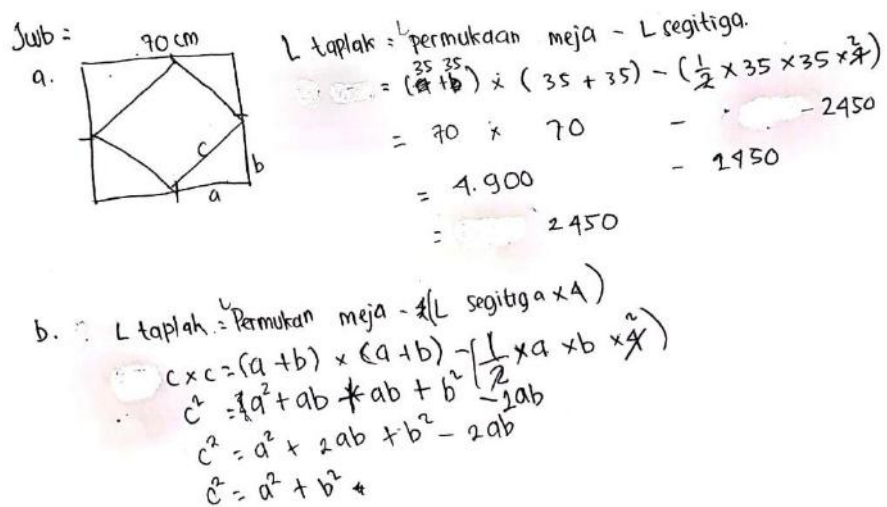 Jwb :
a.
70 cm
c
b
a
L taplak = L permukaan meja - L segitiga.
= (35 + 35) x (35 + 35) - (1/2 x 35 x 35 x 4 2)
= 70 x 70 - 2450
= 4.900 - 2450
= 2450
b. L taplak = L Permukan meja - (L segitiga x 4)
c x c = (a + b) x (a + b) - (1/2 x a x b x 4 2)
c² = a² + ab + ab + b² - 2ab
c² = a² + 2ab + b² - 2ab
c² = a² + b²